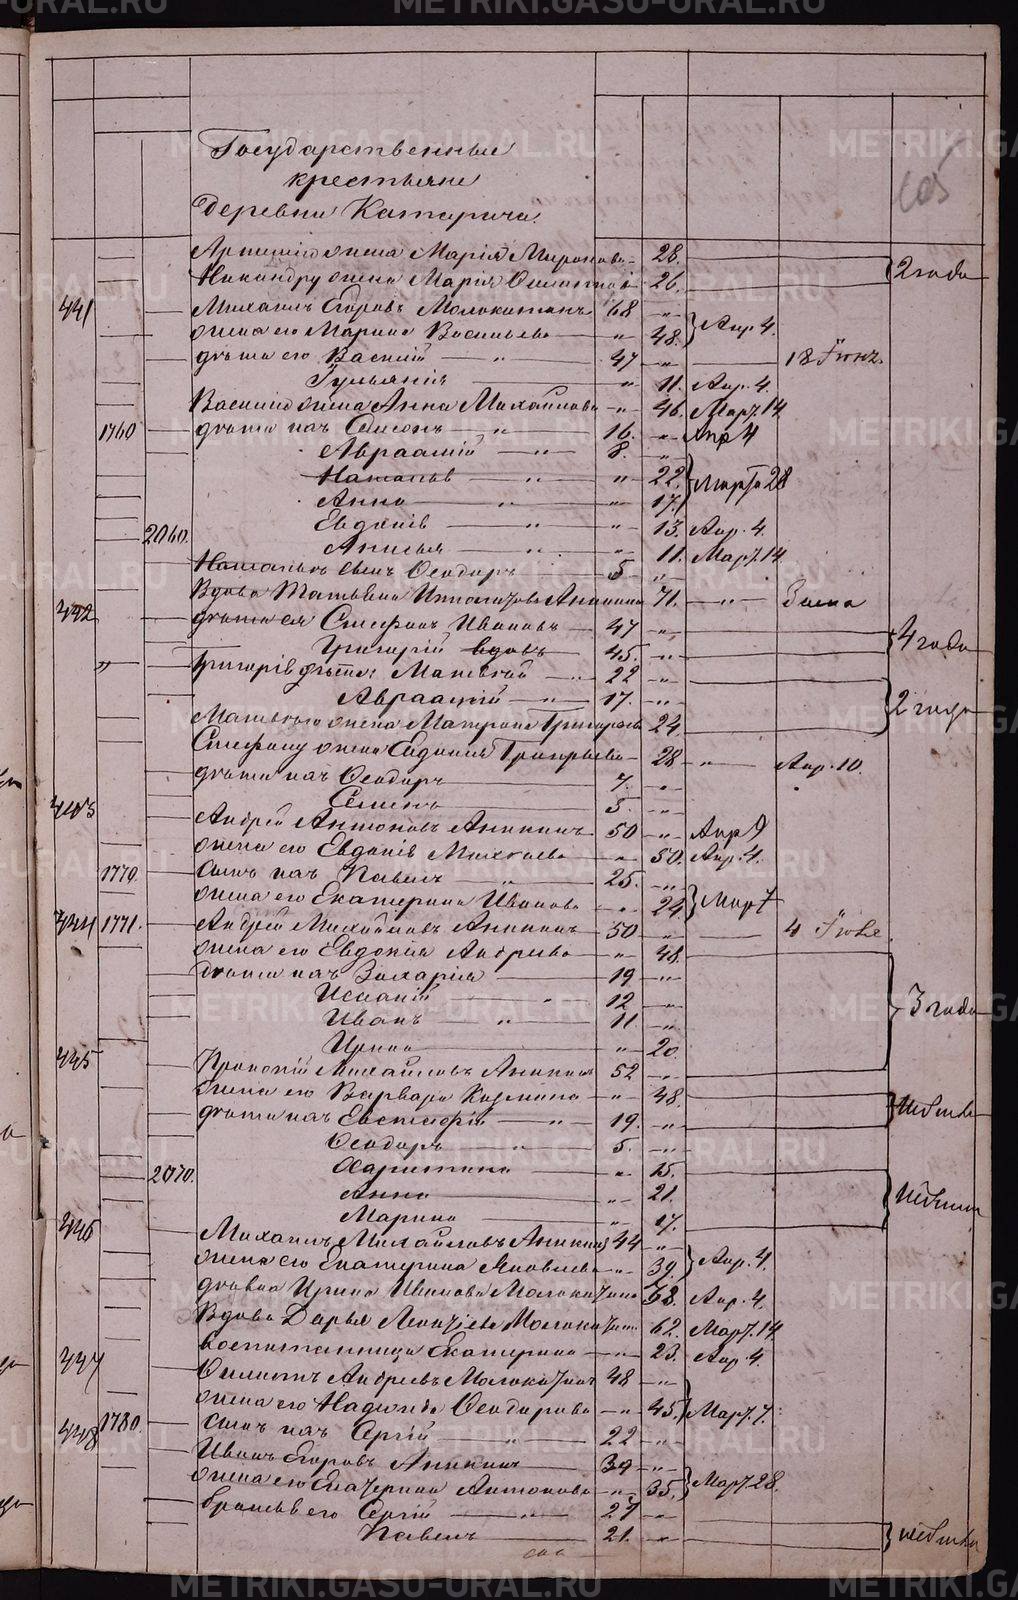 Государственные
крестьяне
деревни Катарача.
105
Арсению жена Марія Миронова — „ 28.
Никандру жена Марія „ 26. 2 года
441 Михаилъ Егоровъ Молокотинъ 68 „
жена его Марина Васильева — „ 48. Апр 4.
дѣти его Василій — „ — 47 „ 18 Іюня.
Гульянія — „ 11. Апр. 4.
Василію жена Анна Михайлова „ 46. Март. 14
1760 дѣти ихъ Самсонъ — „ — 16. „ Апр 4
Авраамій — „ — 8. „
Наталья — „ — „ 22. Марта 28
Анна — „ — „ 17.
Евдокія — „ — „ 13. Апр. 4.
2060. Анисья — „ — „ 11. Март. 14
Натальинъ сынъ Ѳеодоръ 5 „
442 Вдова Татьяна Аникина 71. — „ —
дѣти ея Стефанъ Ивановъ — 47 „ 4 года
Григорій вдовъ — 45. „
„ Григорія дѣти: Матвей — „ 22 „
Авраамій — „ — 17. „ 2 года
Матвею жена Матрона Григорьева 24.
Стефану жена Евдокія 28 „ — Апр. 10.
дѣти ихъ Ѳеодоръ 7. „
Семенъ 5. „
443 Андрей Антоновъ Аникинъ 50 „ Апр 9
жена его Евдокія — „ 50. Апр. 4.
1770. сынъ ихъ Павелъ „ 25. „
жена его Екатерина Иванова „ 24 Мар 7
444 1771. Андрей Михайловъ Аникинъ 50 „ 4 Іюля
жена его Евдокія Андреева — „ 48.
дѣти ихъ Захарія 19 „
Исакій „ 12 „ 3 года
Иванъ — „ — 11 „
Ирина „ 20.
445 Прокопій Михайловъ Аникинъ 52 „
жена его Варвара Козмина — „ 48.
дѣти ихъ Евстафій — „ — 19. „
Ѳеодоръ „ 5. „
2070. Харитина „ 15.
Анна „ 21.
Марина „ 17.
446 Михаилъ Михайловъ Аникинъ 44 „
жена его Екатерина Яковлева „ 39 Апр. 4.
дѣвка Ирина Иванова Молокотина 58. Апр. 4.
Вдова Дарья Леонтіева Молокотин 62. Март. 14
воспитанница Екатерина — „ 23. Апр 4.
447 Филиппъ Андреевъ Молокотинъ 48 „
жена его Надежда Ѳеодорова — „ 45. Март. 7.
1780. сынъ ихъ Сергій „ 22 „
448 Иванъ Егоровъ Аникинъ 39 „
жена его Екатерина Антонова „ 35. Март. 28.
братья его Сергій — „ — 27 „
Павелъ 21. „
METRIKI.GASO-URAL.RU